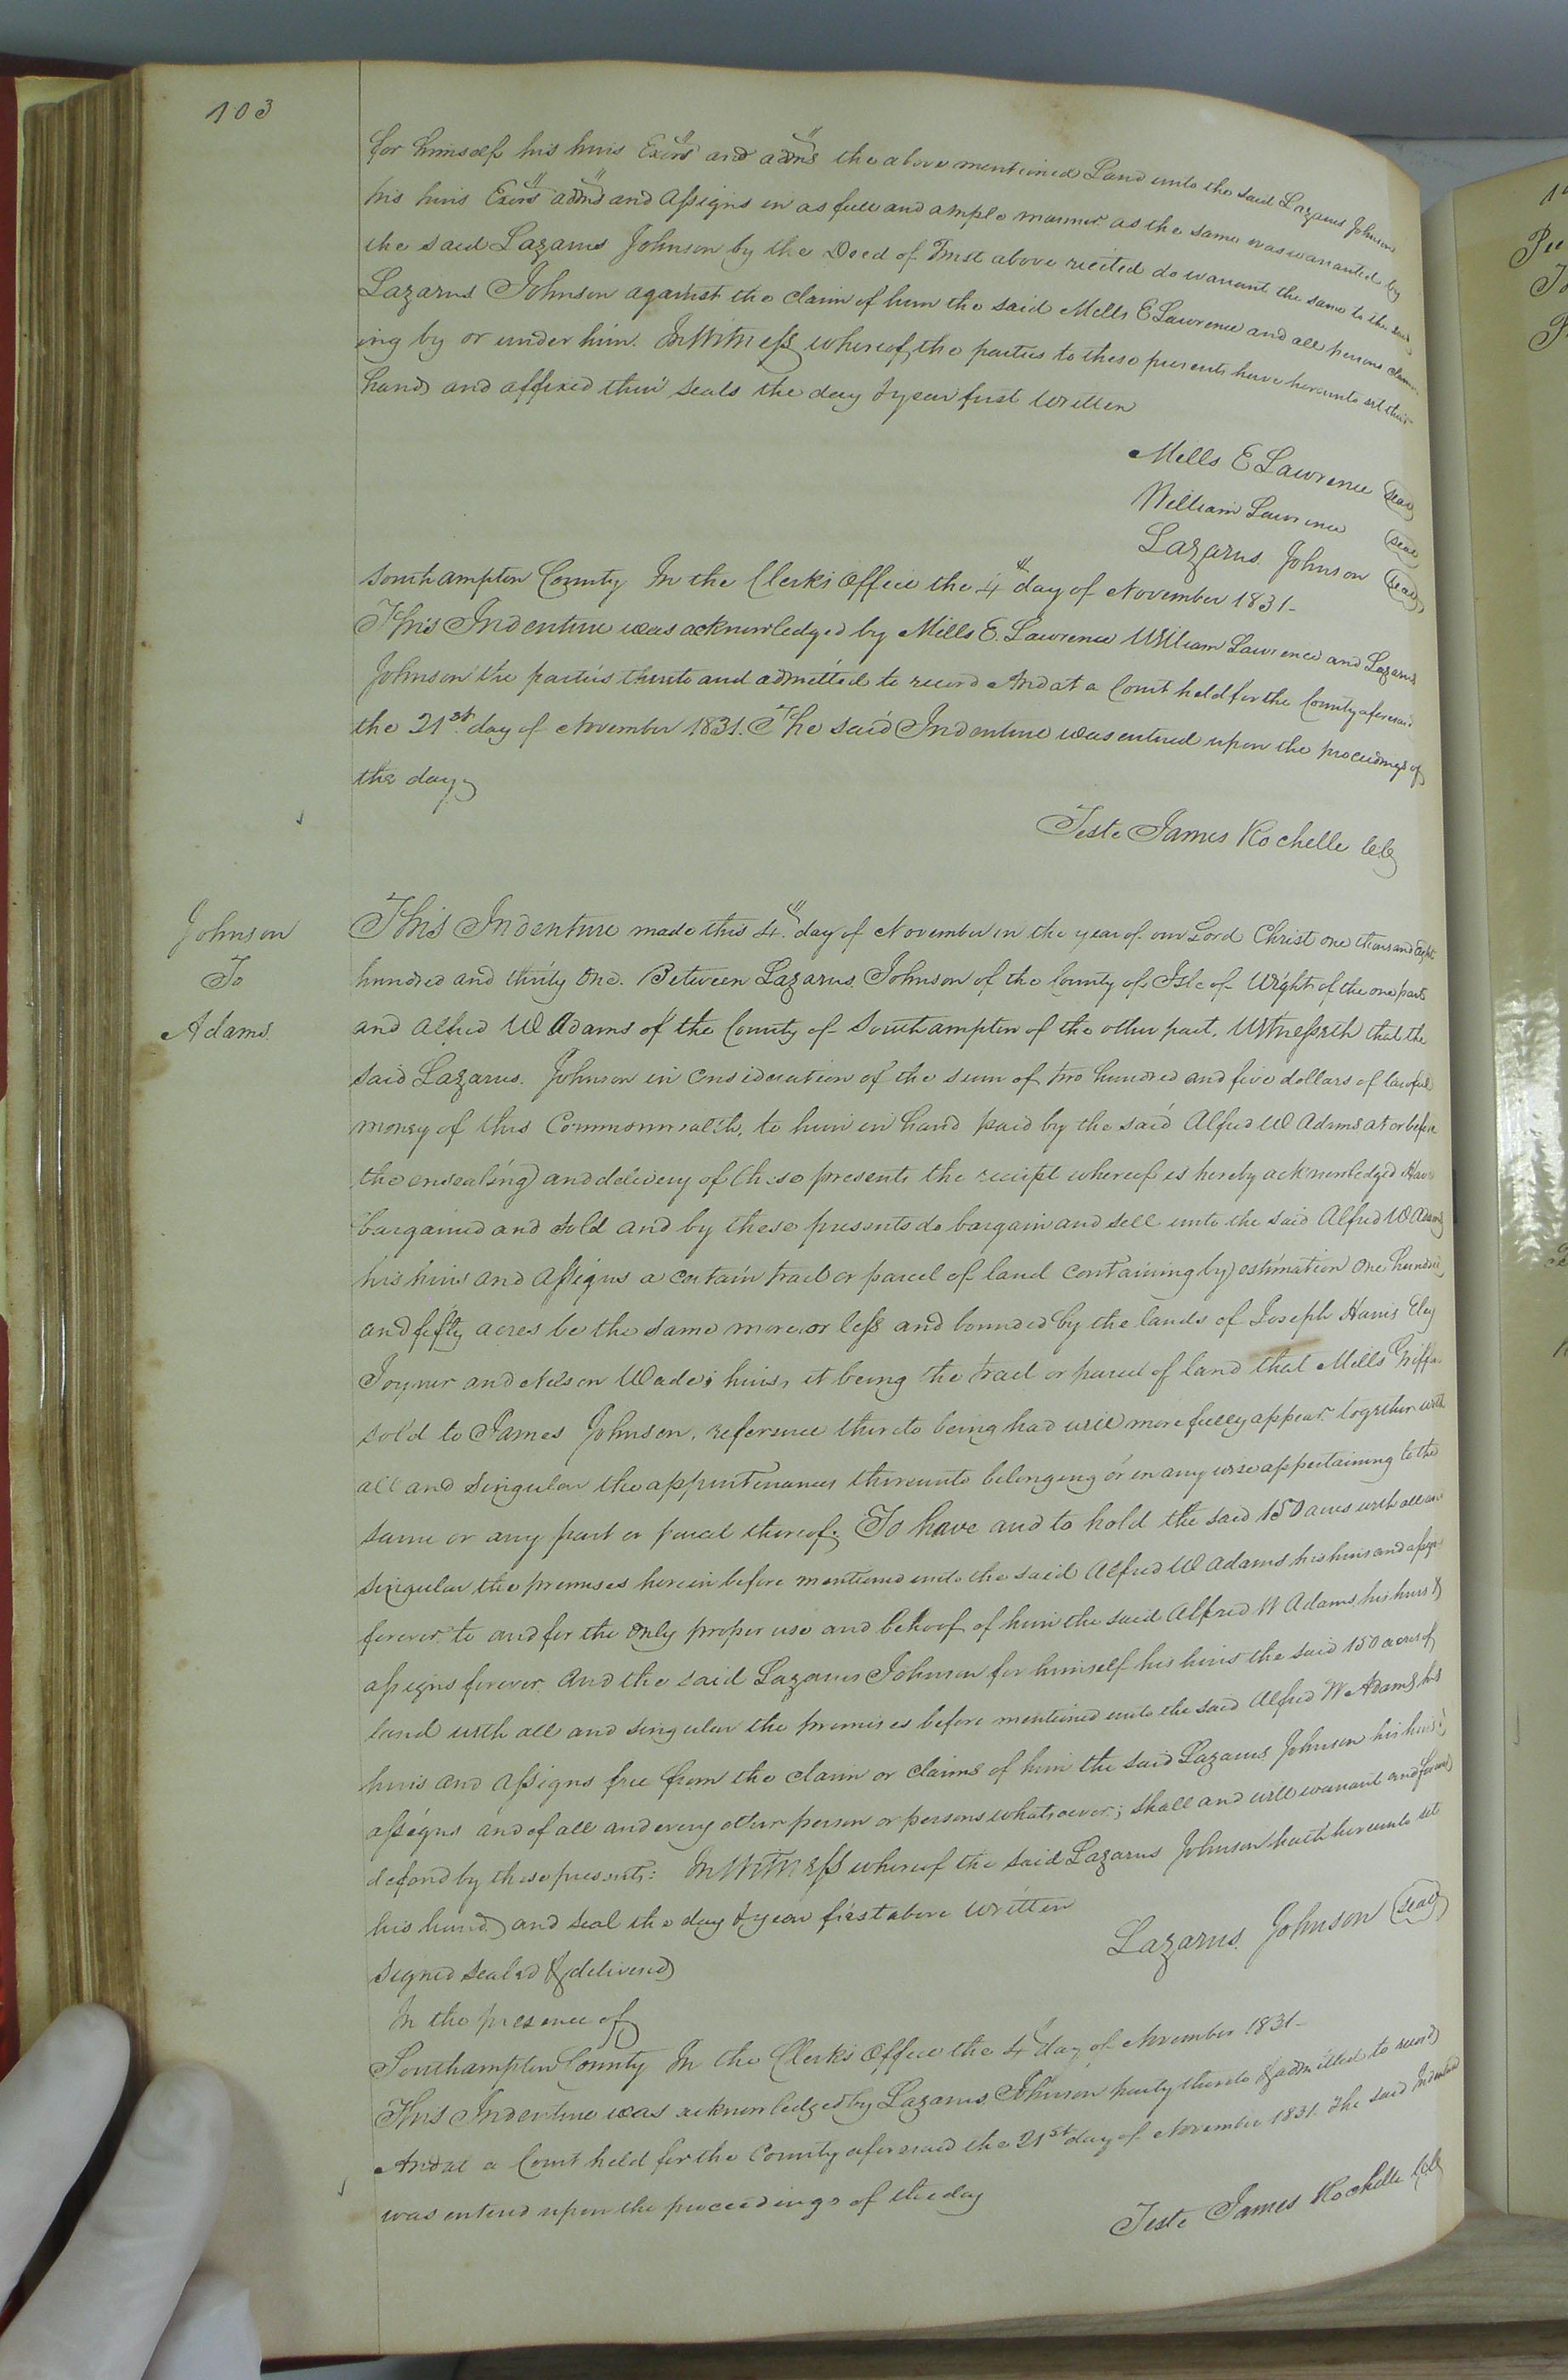 103
for himself his heirs Exors and adms the above mentioned Land unto the said Lazarus Johnson
his heirs Exors adms and assigns in as full and ample manner as the same was warranted by
the said Lazarus Johnson by the Deed of Trust above recited do warrant the same to the said
Lazarus Johnson against the claim of him the said Mills E Lawrence and all persons claim-
ing by or under him. In Witness whereof the parties to these presents have hereunto set their
hands and affixed their seals the day & year first written
Mills E Lawrence seal
William Lawrence seal
Lazarus Johnson seal
Southampton County In the Clerks Office the 4th day of November 1831-
This Indenture was acknowledged by Mills E. Lawrence William Lawrence and Lazarus
Johnson the parties thereto and admitted to record And at a Court held for the County aforesaid
the 21st day of November 1831. The said Indenture was entered upon the proceedings of
the day
Teste James Rochelle
Johnson
To
Adams.
This Indenture made this 4th day of November in the year of our Lord Christ one thousand eight
hundred and thirty One. Between Lazarus Johnson of the County of Isle of Wight of the one part
and Alfred W Adams of the County of Southampton of the other part. Witnesseth that the
said Lazarus Johnson in consideration of the sum of two hundred and five dollars of lawful
money of this Commonwealth, to him in hand paid by the said Alfred W Adams at or before
the ensealing and delivery of these presents the receipt whereof is hereby acknowledged Have
bargained and sold and by these presents do bargain and sell unto the said Alfred W Adams
his heirs and assigns a certain tract or parcel of land containing by estimation One hundred
and fifty acres be the same more or less and bounded by the lands of Joseph Harris Eley
Joyner and Nelson Wade's heirs, it being the tract or parcel of land that Mills
sold to James Johnson, reference thereto being had will more fully appear together with
all and singular the appurtenances thereunto belonging or in any wise appertaining to the
same or any part or parcel thereof. To have and to hold the said 150 acres with all and
singular the premises herein before mentioned unto the said Alfred W Adams his heirs and assigns
forever to and for the only proper use and behoof of him the said Alfred W Adams his heirs &
assigns forever. And the said Lazarus Johnson for himself his heirs the said 150 acres of
land with all and singular the premises before mentioned unto the said Alfred W Adams his
heirs and assigns free from the claim or claims of him the said Lazarus Johnson his heirs &
assigns and of all and every other person or persons whatsoever; shall and will warrant and forever
defend by these presents: In Witness whereof the said Lazarus Johnson hath hereunto set
his hand and seal the day & year first above written
Lazarus Johnson seal
Signed sealed & delivered
In the presence of
Southampton County In the Clerks Office the 4th day of November 1831-
This Indenture was acknowledged by Lazarus Johnson party thereto & admitted to record
And at a Court held for the County aforesaid the 21st day of November 1831. The said Indenture
was entered upon the proceedings of the day
Teste James Rochelle